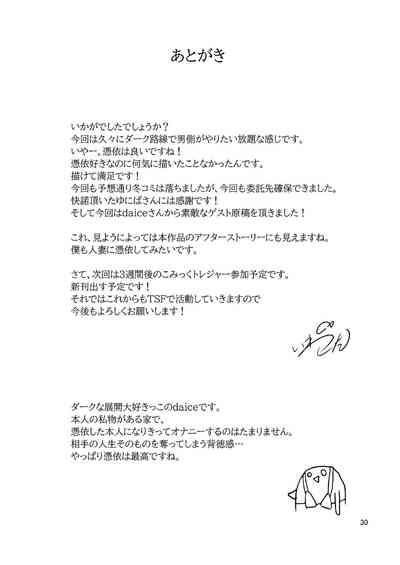 あとがき
いかがでしたでしょうか?
今回は久々にダーク路線で男側がやりたい放題な感じです。
いやー、憑依は良いですね!
憑依好きなのに何気に描いたことなかったんです。
描けて満足です!
今回も予想通り冬コミは落ちましたが、今回も委託先確保できました。
快諾頂いたゆにばさんには感謝です!
そして今回はdaiceさんから素敵なゲスト原稿を頂きました!
これ、見ようによっては本作品のアフターストーリーにも見えますね。
僕も人妻に憑依してみたいです。
さて、次回は3週間後のこみっくトレジャー参加予定です。
新刊出す予定です!
それではこれからもTSFで活動していきますので
今後もよろしくお願いします!
ダークな展開大好きっこのdaiceです。
本人の私物がある家で、
憑依した本人になりきってオナニーするのはたまりません。
相手の人生そのものを奪ってしまう背徳感…
やっぱり憑依は最高ですね。
30